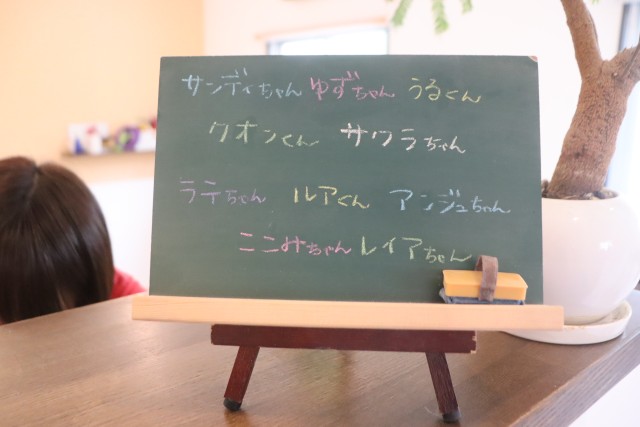 サンディちゃん ゆずちゃん うるくん
クオンくん サワラちゃん
ラテちゃん ルアくん アンジュちゃん
ここみちゃん レイアちゃん